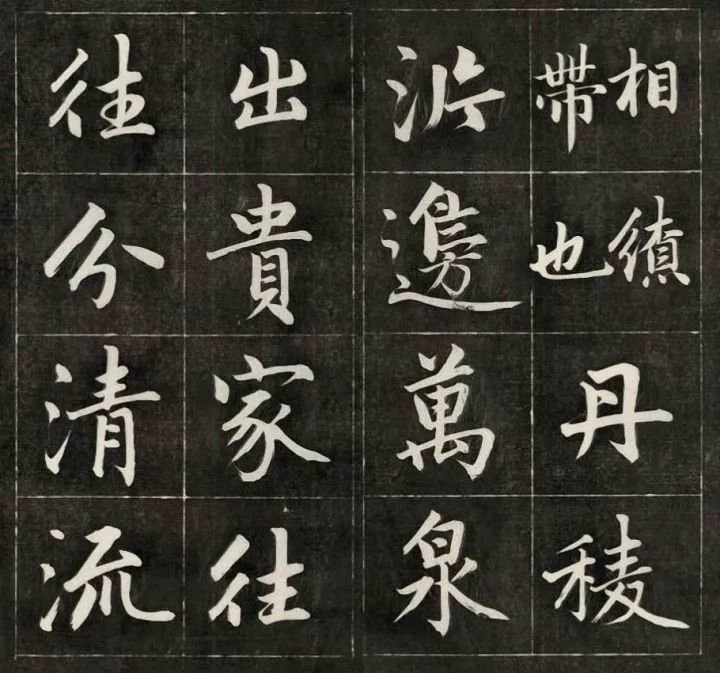 相續
帶也
丹稜
沜邊萬泉
出貴家往
往分清流